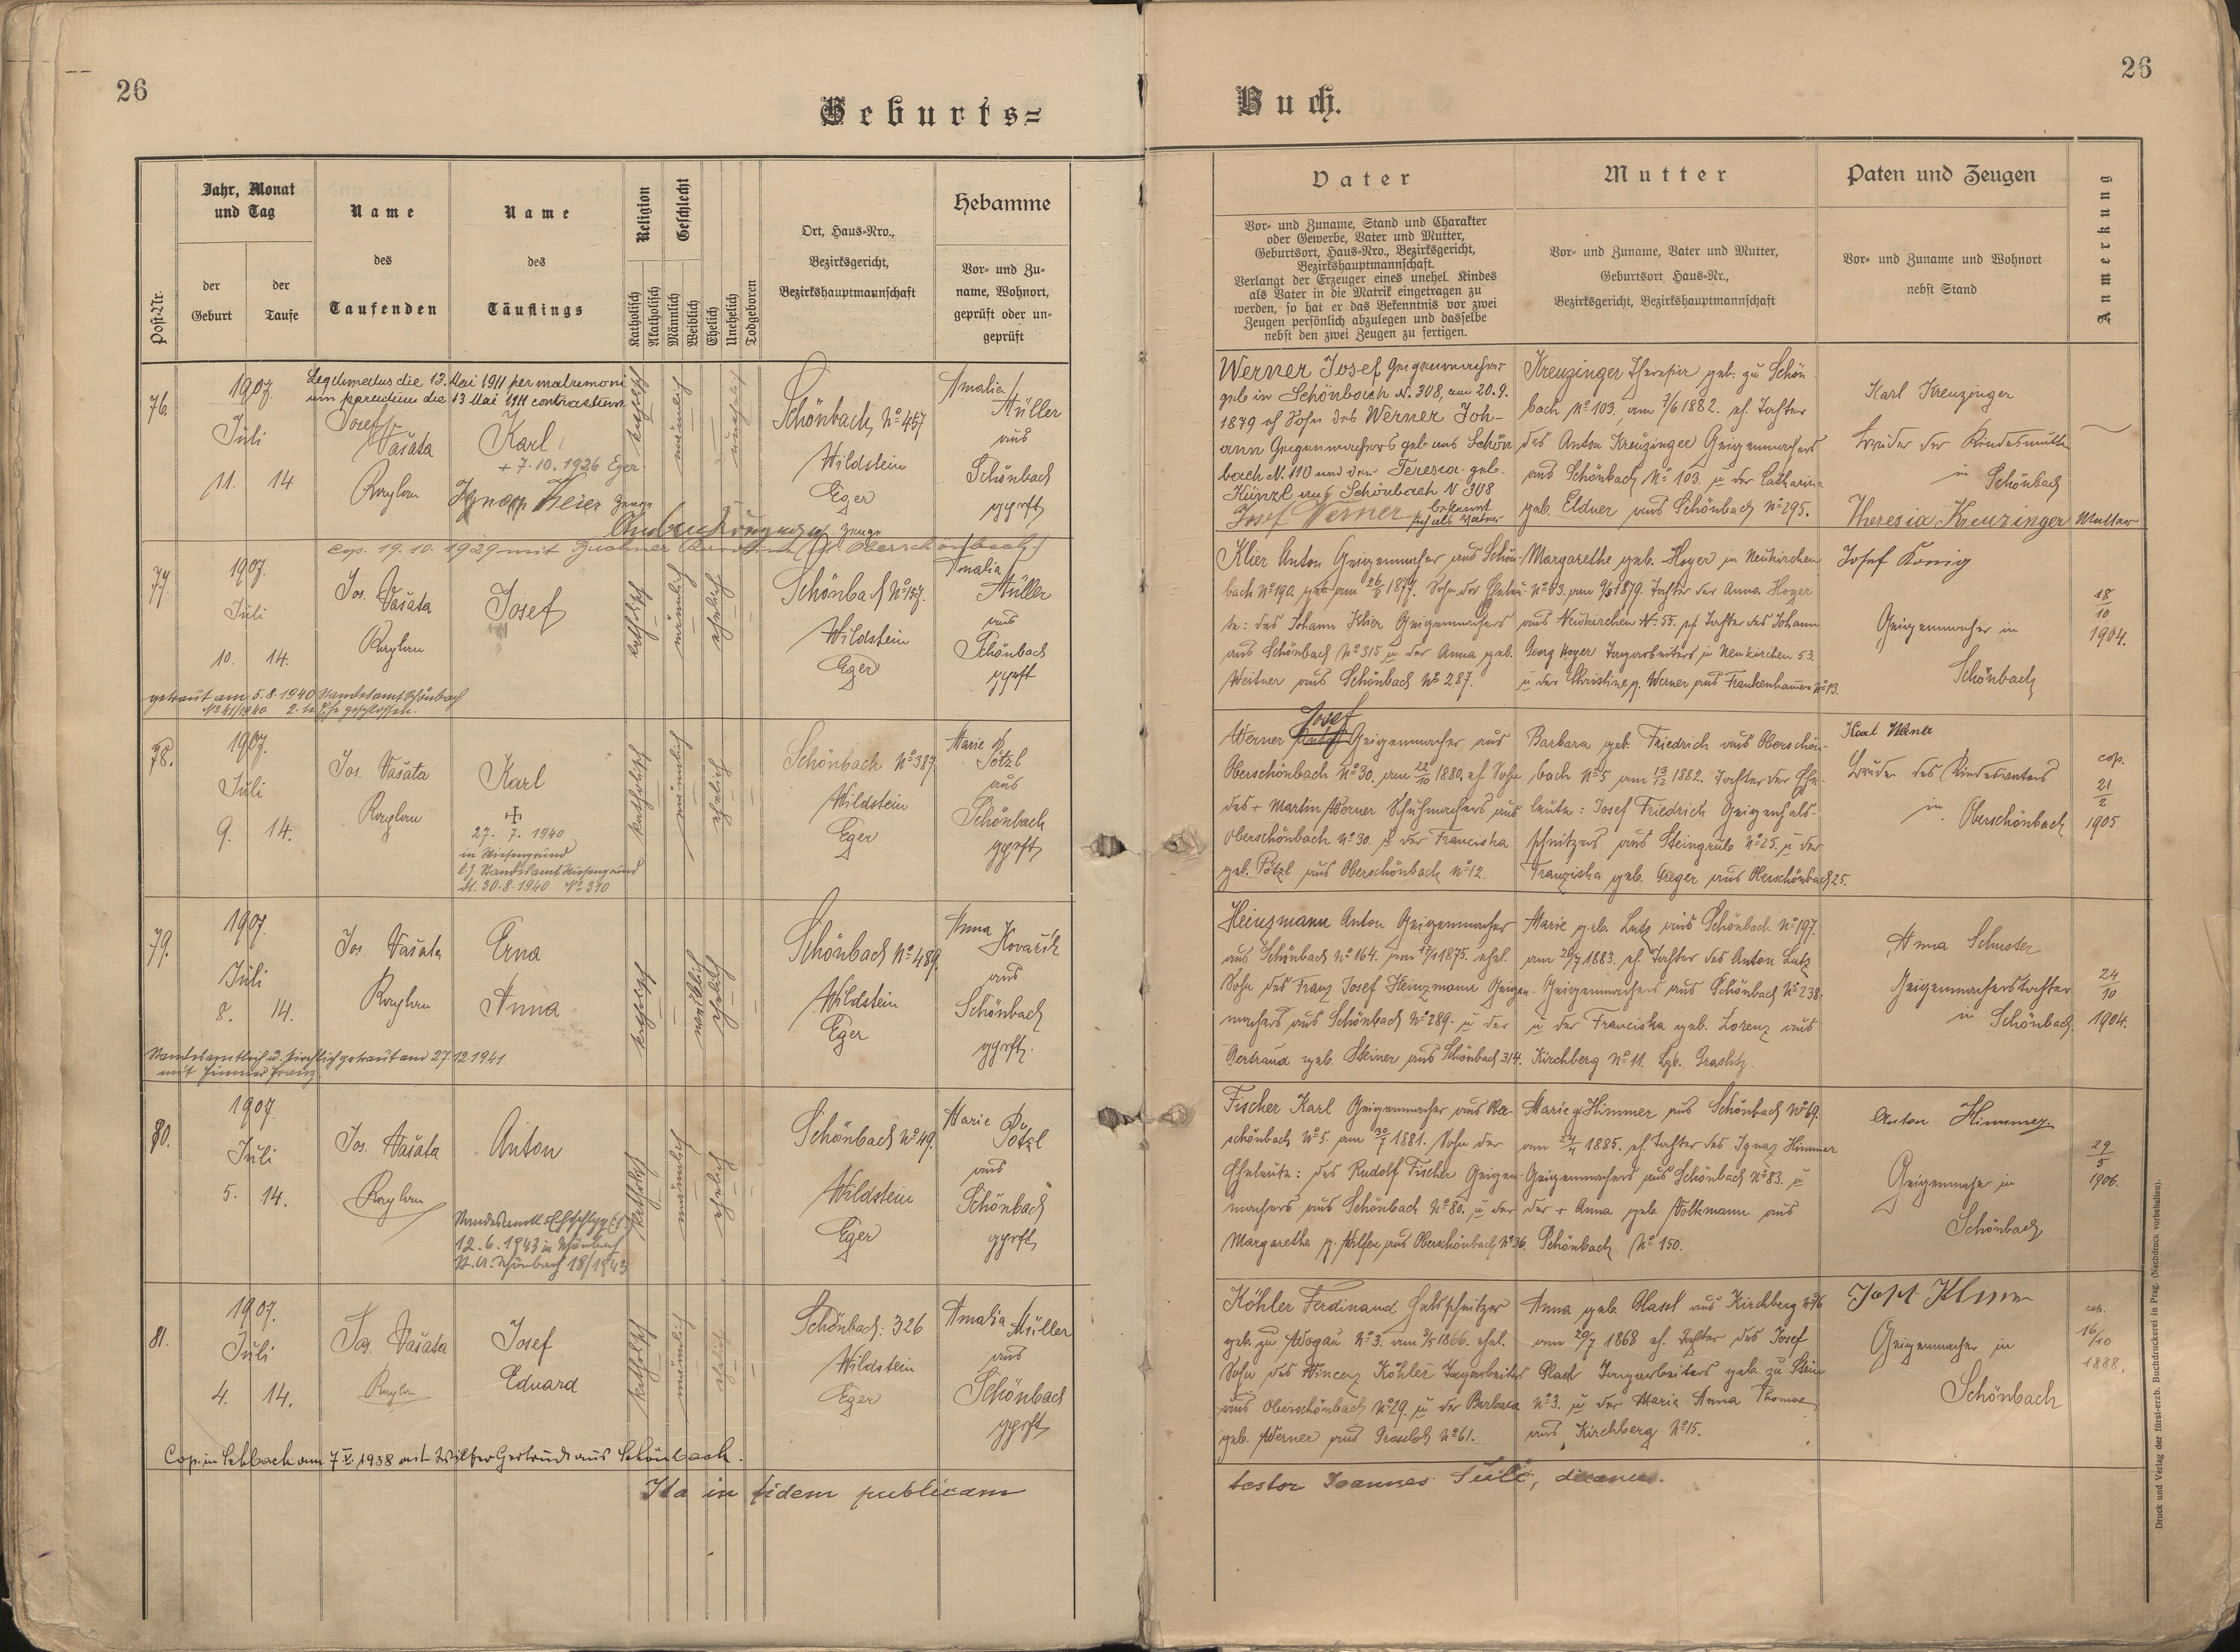 26
Geburts=
Jahr, Monat
und Tag
der
Geburt
der
Taufe
Post-Nr.
Name
des
Taufenden
Name
des
Täuflings
Religion
Geschlecht
Katholisch
Akatholisch
Männlich
Weiblich
Ehelich
Unehelich
Todgeboren
Ort, Haus-Nro.,
Bezirksgericht,
Bezirkshauptmannschaft
Hebamme
Vor- und Zu-
name, Wohnort,
geprüft oder un-
geprüft
76.
1907.
Juli
11. 14
Legitimatus die 13. Mai 1911 per matrimoni
um parentum die 13 Mai 1911 contractum
Josef
Vašata
Kaplan
Karl
+ 7.10.1926 Eger
Zeuge
Zeuge
katholisch
männlich
unehelich
Schönbach, No 457
Wildstein
Eger
Amalia
Müller
aus
Schönbach
gprft
cop. 19.10.1929 mit
77.
1907.
Juli
10. 14.
Jos. Vašata
Kaplan
Josef
katholisch
männlich
ehelich
Schönbach No 157.
Wildstein
Eger
Amalia
Müller
aus
Schönbach
gprft
getraut am 5.8.1940 Standesamt Schönbach
No 41/1940 2. te Ehe geschlossen.
78.
1907.
Juli
9. 14.
Jos. Vašata
Kaplan
Karl
27. 7. 1940
in Riesengrund
Standesamt Riesengrund
dt. 30.8.1940 No 390
katholisch
männlich
ehelich
Schönbach No 387
Wildstein
Eger
Marie
Pötzl
aus
Schönbach
gprft
79.
1907.
Juli
8. 14.
Jos. Vašata
Kaplan
Erna
Anna
katholisch
weiblich
ehelich
Schönbach No 489.
Wildstein
Eger
Anna
Kovařik
aus
Schönbach
gprft.
Standesamtlich u. kirchlich getraut am 27.12.1941
mit
80.
1907
Juli
5. 14.
Jos. Vašata
Kaplan
Anton
Standesamtl. Eheschlg.
12.6.1943 in Schönbach
St. A. Schönbach 18/1943
katholisch
männlich
ehelich
Schönbach No 49.
Wildstein
Eger
Marie
Pötzl
aus
Schönbach
gprft
81.
1907.
Juli
4. 14.
Jos. Vašata
Kaplan
Josef
Eduard
katholisch
männlich
ehelich
Schönbach: 326
Wildstein
Eger
Amalia
Müller
aus
Schönbach
gprft
Cop. in Schbach am 7 V. 1938 mit Wilfer Gertrud aus Schönbach.
Ita in fidem publicam
26
Buch.
Vater
Vor- und Zuname, Stand und Charakter
oder Gewerbe, Vater und Mutter,
Geburtsort, Haus-Nro., Bezirksgericht,
Bezirkshauptmannschaft.
Verlangt der Erzeuger eines unehel. Kindes
als Vater in die Matrik eingetragen zu
werden, so hat er das Bekenntnis vor zwei
Zeugen persönlich abzulegen und dasselbe
nebst den zwei Zeugen zu fertigen.
Mutter
Vor- und Zuname, Vater und Mutter,
Geburtsort, Haus-Nr.,
Bezirksgericht, Bezirkshauptmannschaft
Paten und Zeugen
Vor- und Zuname und Wohnort
nebst Stand
Anmerkung
Werner Josef Geigenmacher
geb in Schönbach N. 308, am 20.9.
1879 eh Sohn des Werner Joh-
ann Geigenmachers geb. aus Schön
bach N. 110 und der Teresia geb.
Künzl aus Schönbach N 308
Josef Werner bekennt
sich als Vater
Kreuzinger Theresia geb. zu Schön
bach No 103, am 7/6 1882. eh. Tochter
des Anton Kreuzinger Geigenmachers
aus Schönbach No 103. u der Catharina
geb. Eldner aus Schönbach No 295.
Karl Kreuzinger
Bruder der Kindesmutter
in Schönbach
Theresia Kreuzinger Mutter
Klier Anton Geigenmacher aus Schön-
bach No 190. geb am 26/5 1877. Sohn der Eheleu-
te: des Johann Klier Geigenmachers
aus Schönbach No 315 u der Anna geb.
Weitner aus Schönbach No 287.
Margarethe geb. Hoyer in Neukirchen
Tochter der Anna Hoyer
aus Neukirchen N. 55. eh. Tochter des Johann
Georg Hoyer Tagarbeiters in Neukirchen 53.
u der Christine g. Werner aus Frankenhammer No 13.
Josef König
Geigenmacher in
Schönbach
18/10
1904.
Josef
Werner Geigenmacher aus
Oberschönbach No 30. am 22/10 1880. eh. Sohn
des + Martin Werner Schuhmachers aus
Oberschönbach No 30. u der Franciska
geb. Pötzl aus Oberschönbach No 12.
Barbara geb. Friedrich aus Oberschön-
bach No 5 am 13/12 1882. Tochter der Ehe-
leute: Josef Friedrich Geigenhals-
schnitzers aus Steingrub No 25. u der
Franziska geb. Greger aus Oberschönbach 25.
Karl Werner
Bruder des Kindesvaters
in Oberschönbach
cop.
21/2
1905
Heinzmann Anton Geigenmacher
aus Schönbach No 164. am 17/1 1875. ehel.
Sohn des Franz Josef Heinzmann Geigen-
machers aus Schönbach No 289. u der
Gertraud geb. Steiner aus Schönbach 314.
Marie geb. Lutz aus Schönbach No 197.
am 20/7 1883. eh. Tochter des Anton Lutz
Geigenmachers aus Schönbach No 238.
u der Franciska geb. Lorenz aus
Kirchberg No 11. Bzk. Graslitz.
Anna Schuster
Geigenmacherstochter
in Schönbach.
24/10
1904.
Fischer Karl Geigenmacher aus Ober-
schönbach No 5. am 30/7 1881. Sohn der
Eheleute: des Rudolf Fischer Geigen-
machers aus Schönbach No 80. u der
Margarethe g. Wilfer aus Oberschönbach No 36.
Marie g. Himmer aus Schönbach No 69.
am 24/4 1885. eh. Tochter des Ignaz Himmer
Geigenmachers aus Schönbach No 83. u
der + Anna geb. Volkmann aus
Schönbach No 150.
Anton Himmer
Geigenmacher in
Schönbach
29/5
1906.
Köhler Ferdinand Halsschnitzer
geb. zu Wogau No 3. am 3/5 1866. ehel.
Sohn des Vincenz Köhler Tagarbeiters
aus Oberschönbach No 29. u der Barbara
geb. Werner aus No 61.
Anna geb. Glassl aus Kirchberg No 76
am 20/7 1868 eh. Tochter des Josef
Glassl Tagarbeiters geb. zu Stein
No 3. u der Maria Anna Thomas
aus Kirchberg No 15.
Geigenmacher in
Schönbach
cop.
16/10
1888.
testor Joannes decanus.
Druck und Verlag der fürst-erzb. Buchdruckerei in Prag. (Nachdruck vorbehalten).